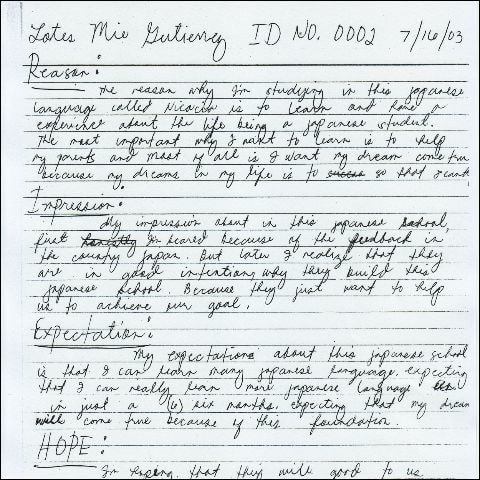 Lotes Mie Gutierrez ID NO. 0002 7/16/03
Reason:
The reason why I'm studying in this japanese
language called Nicacin is to learn and have a
experience about the life being a japanese student.
The most important why I want to learn is to help
my parents and most of all is I want my dream come true
because my dreams in my life is to so that I can
Impression:
My impression about in this japanese school,
first honestly I'm scared because of the feedback in
the country Japan. But later I realize that they
are in good intentions why they build this
japanese school. Because they just want to help
us to achieve our goal.
Expectation:
My expectations about this japanese school
is that I can learn many japanese language. expecting
that I can really learn more japanese language
in just a (6) six months. expecting that my dream
will come true because of this foundation.
HOPE:
I'm hoping that they will good to us